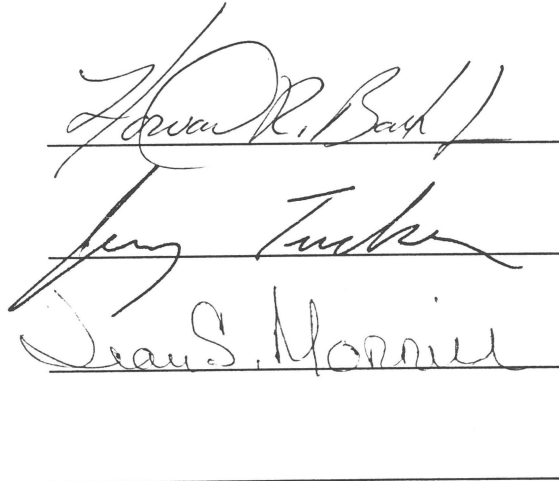 Howard R. Bach
Jerry Tucker
Jean S. Morrill